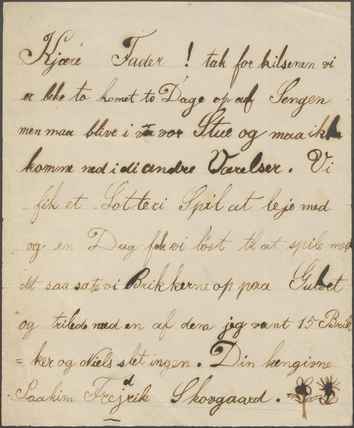 Kjære Fader! tak for hilsenen vi
er bke to komet to Dage op af Sengen
men maa blive i vor Stue og maa ikke
komme ned i di andre Værelser. Vi
fik et Lotteri Spil at leje med
og en Dag fik vi löst til at spile med
dt saa satte vi Brikkerne op paa Gulvet
og trilede med en af dem jeg vant 15 Brik
=ker og Niels slet ingen. Din hengivne
Joakim Fredrik Skovgaard.